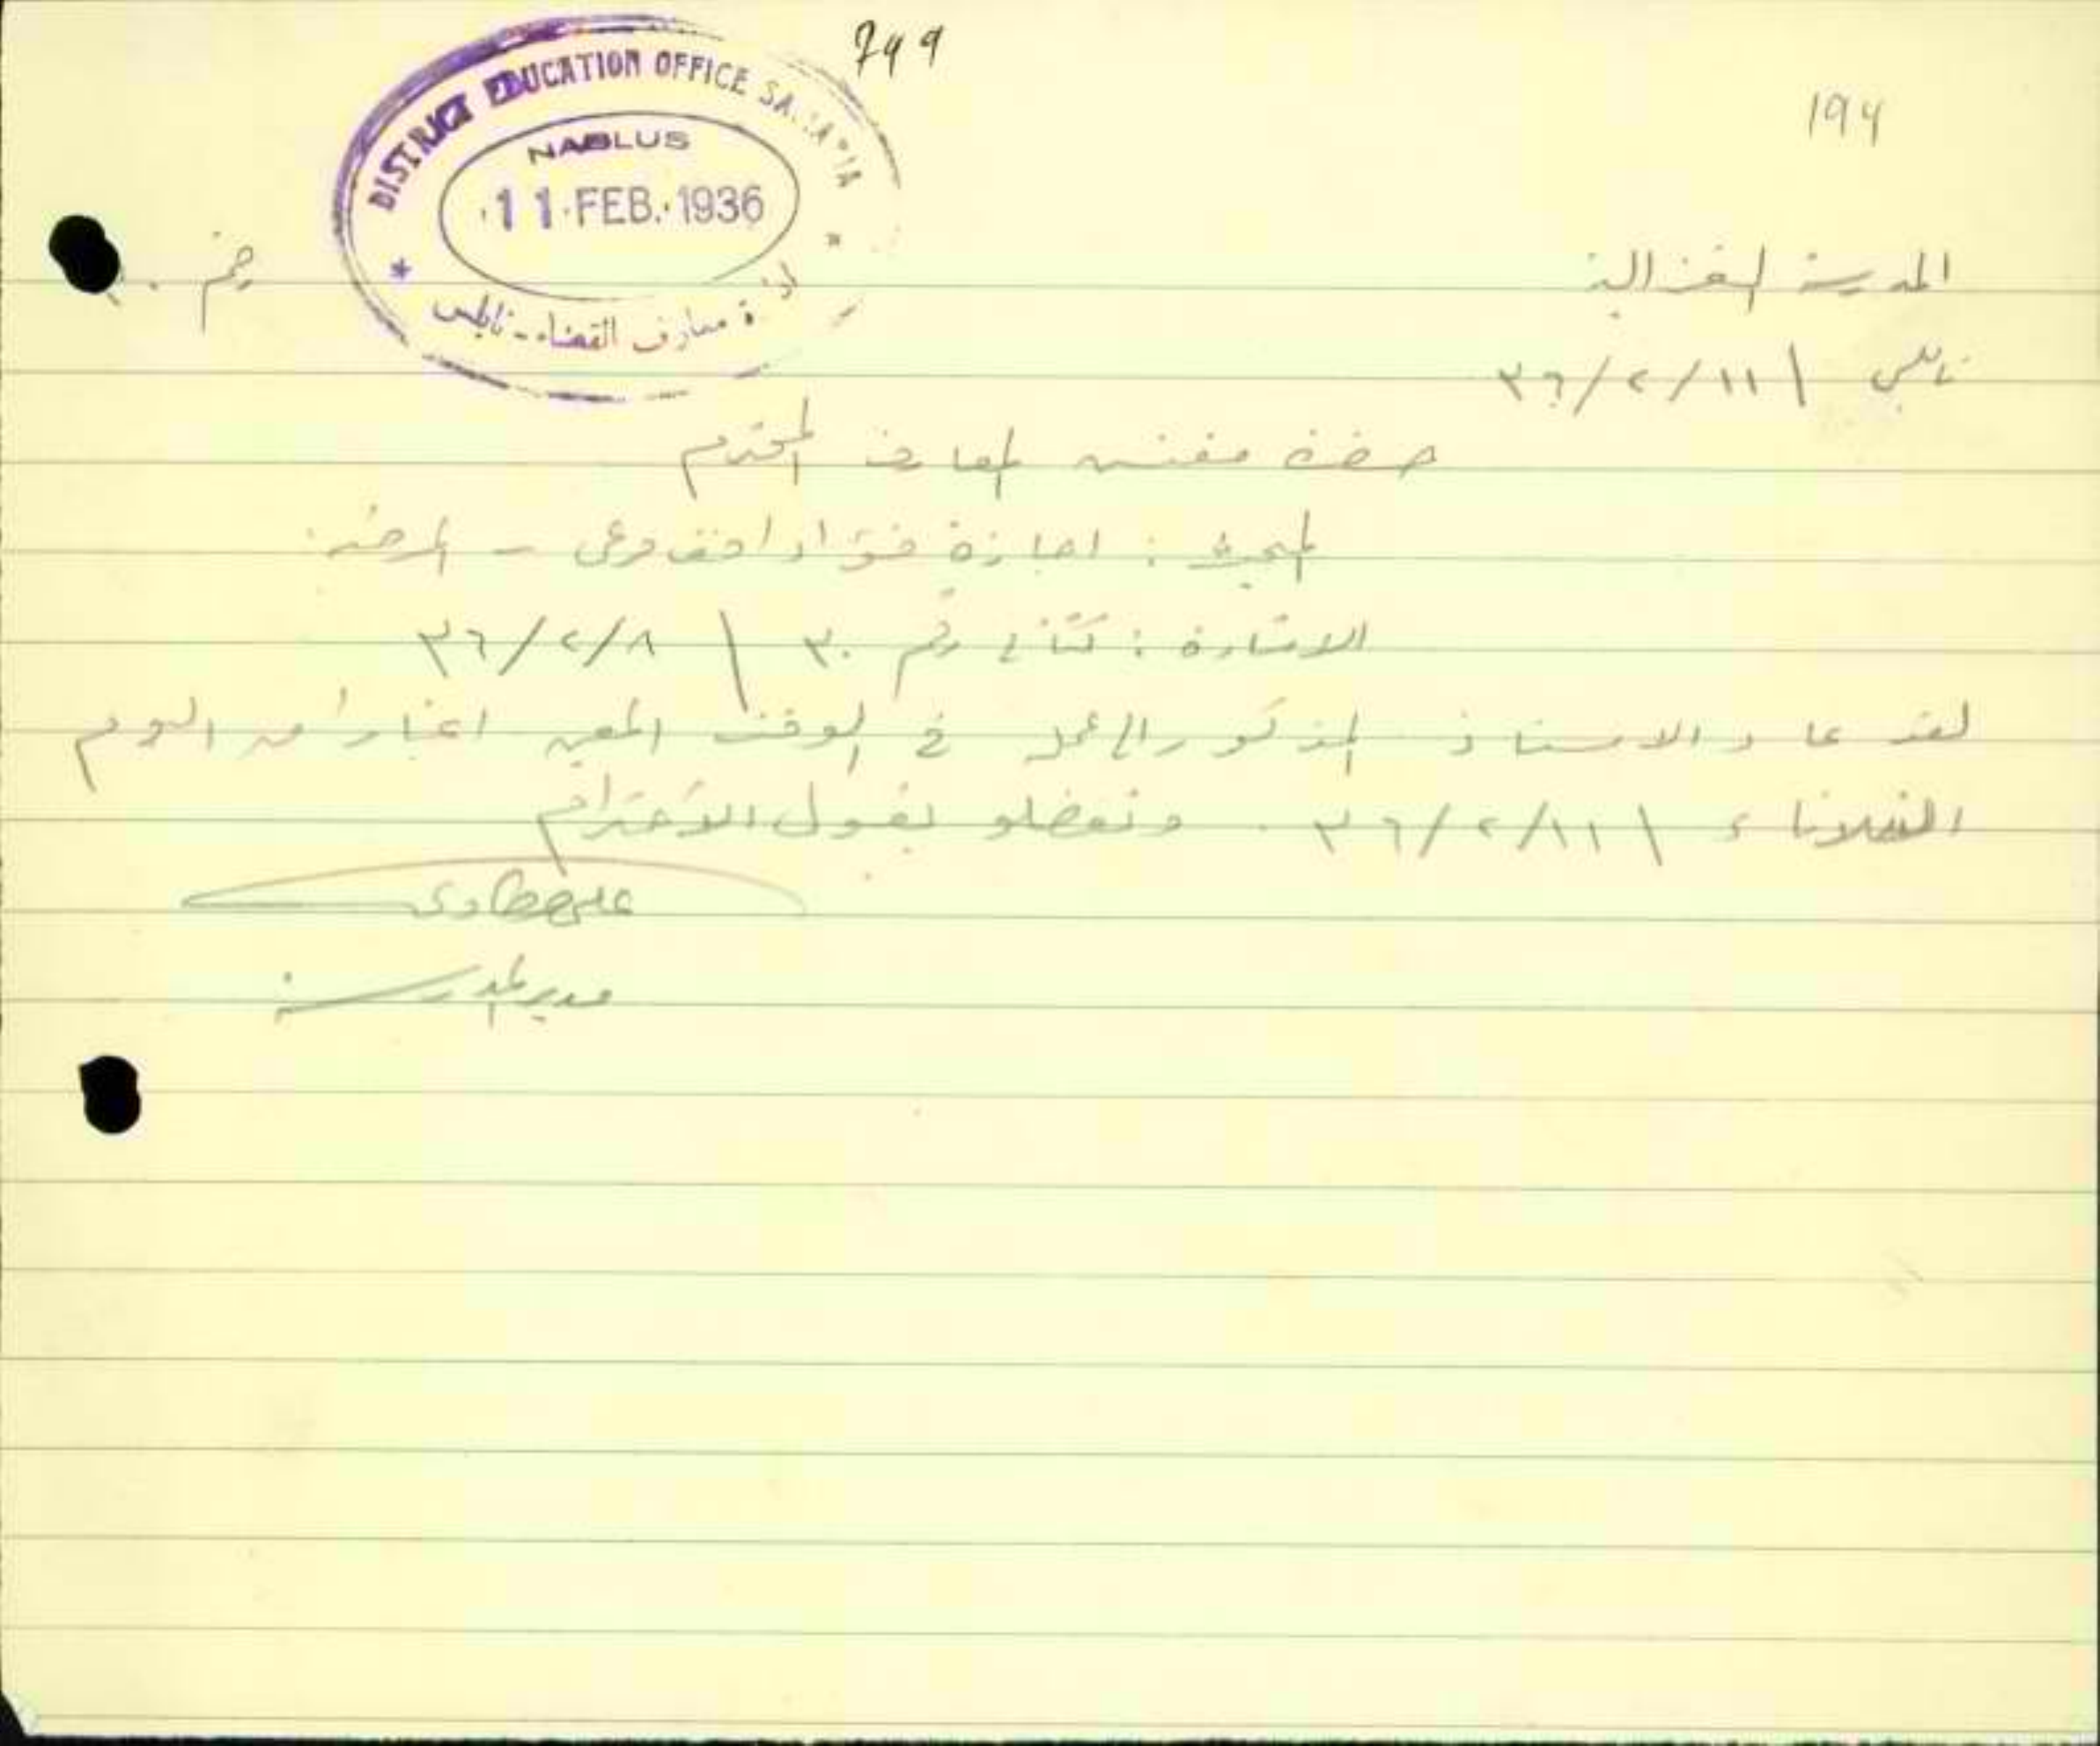 799
194
DISTRICT EDUCATION OFFICE SAMARIA
NABLUS
11 FEB. 1936
ادارة معارف القضاء - نابلس
المدرسة الغزالية
رقم
نابلس \ ٣٦/٢/١١
حضرة مفتش المعارف المحترم
المبحث : اجازة فؤاد افندي - المرضية
الاشارة : كتابي رقم ٣٠ \ ٣٦/٢/٨
لقد عاد الاستاذ المذكور الى عمله في الوقت المعين اعتباراً من اليوم
الثلاثاء \ ٣٦/٢/١١ . وتفضلوا بقبول الاحترام
مدير المدرسة